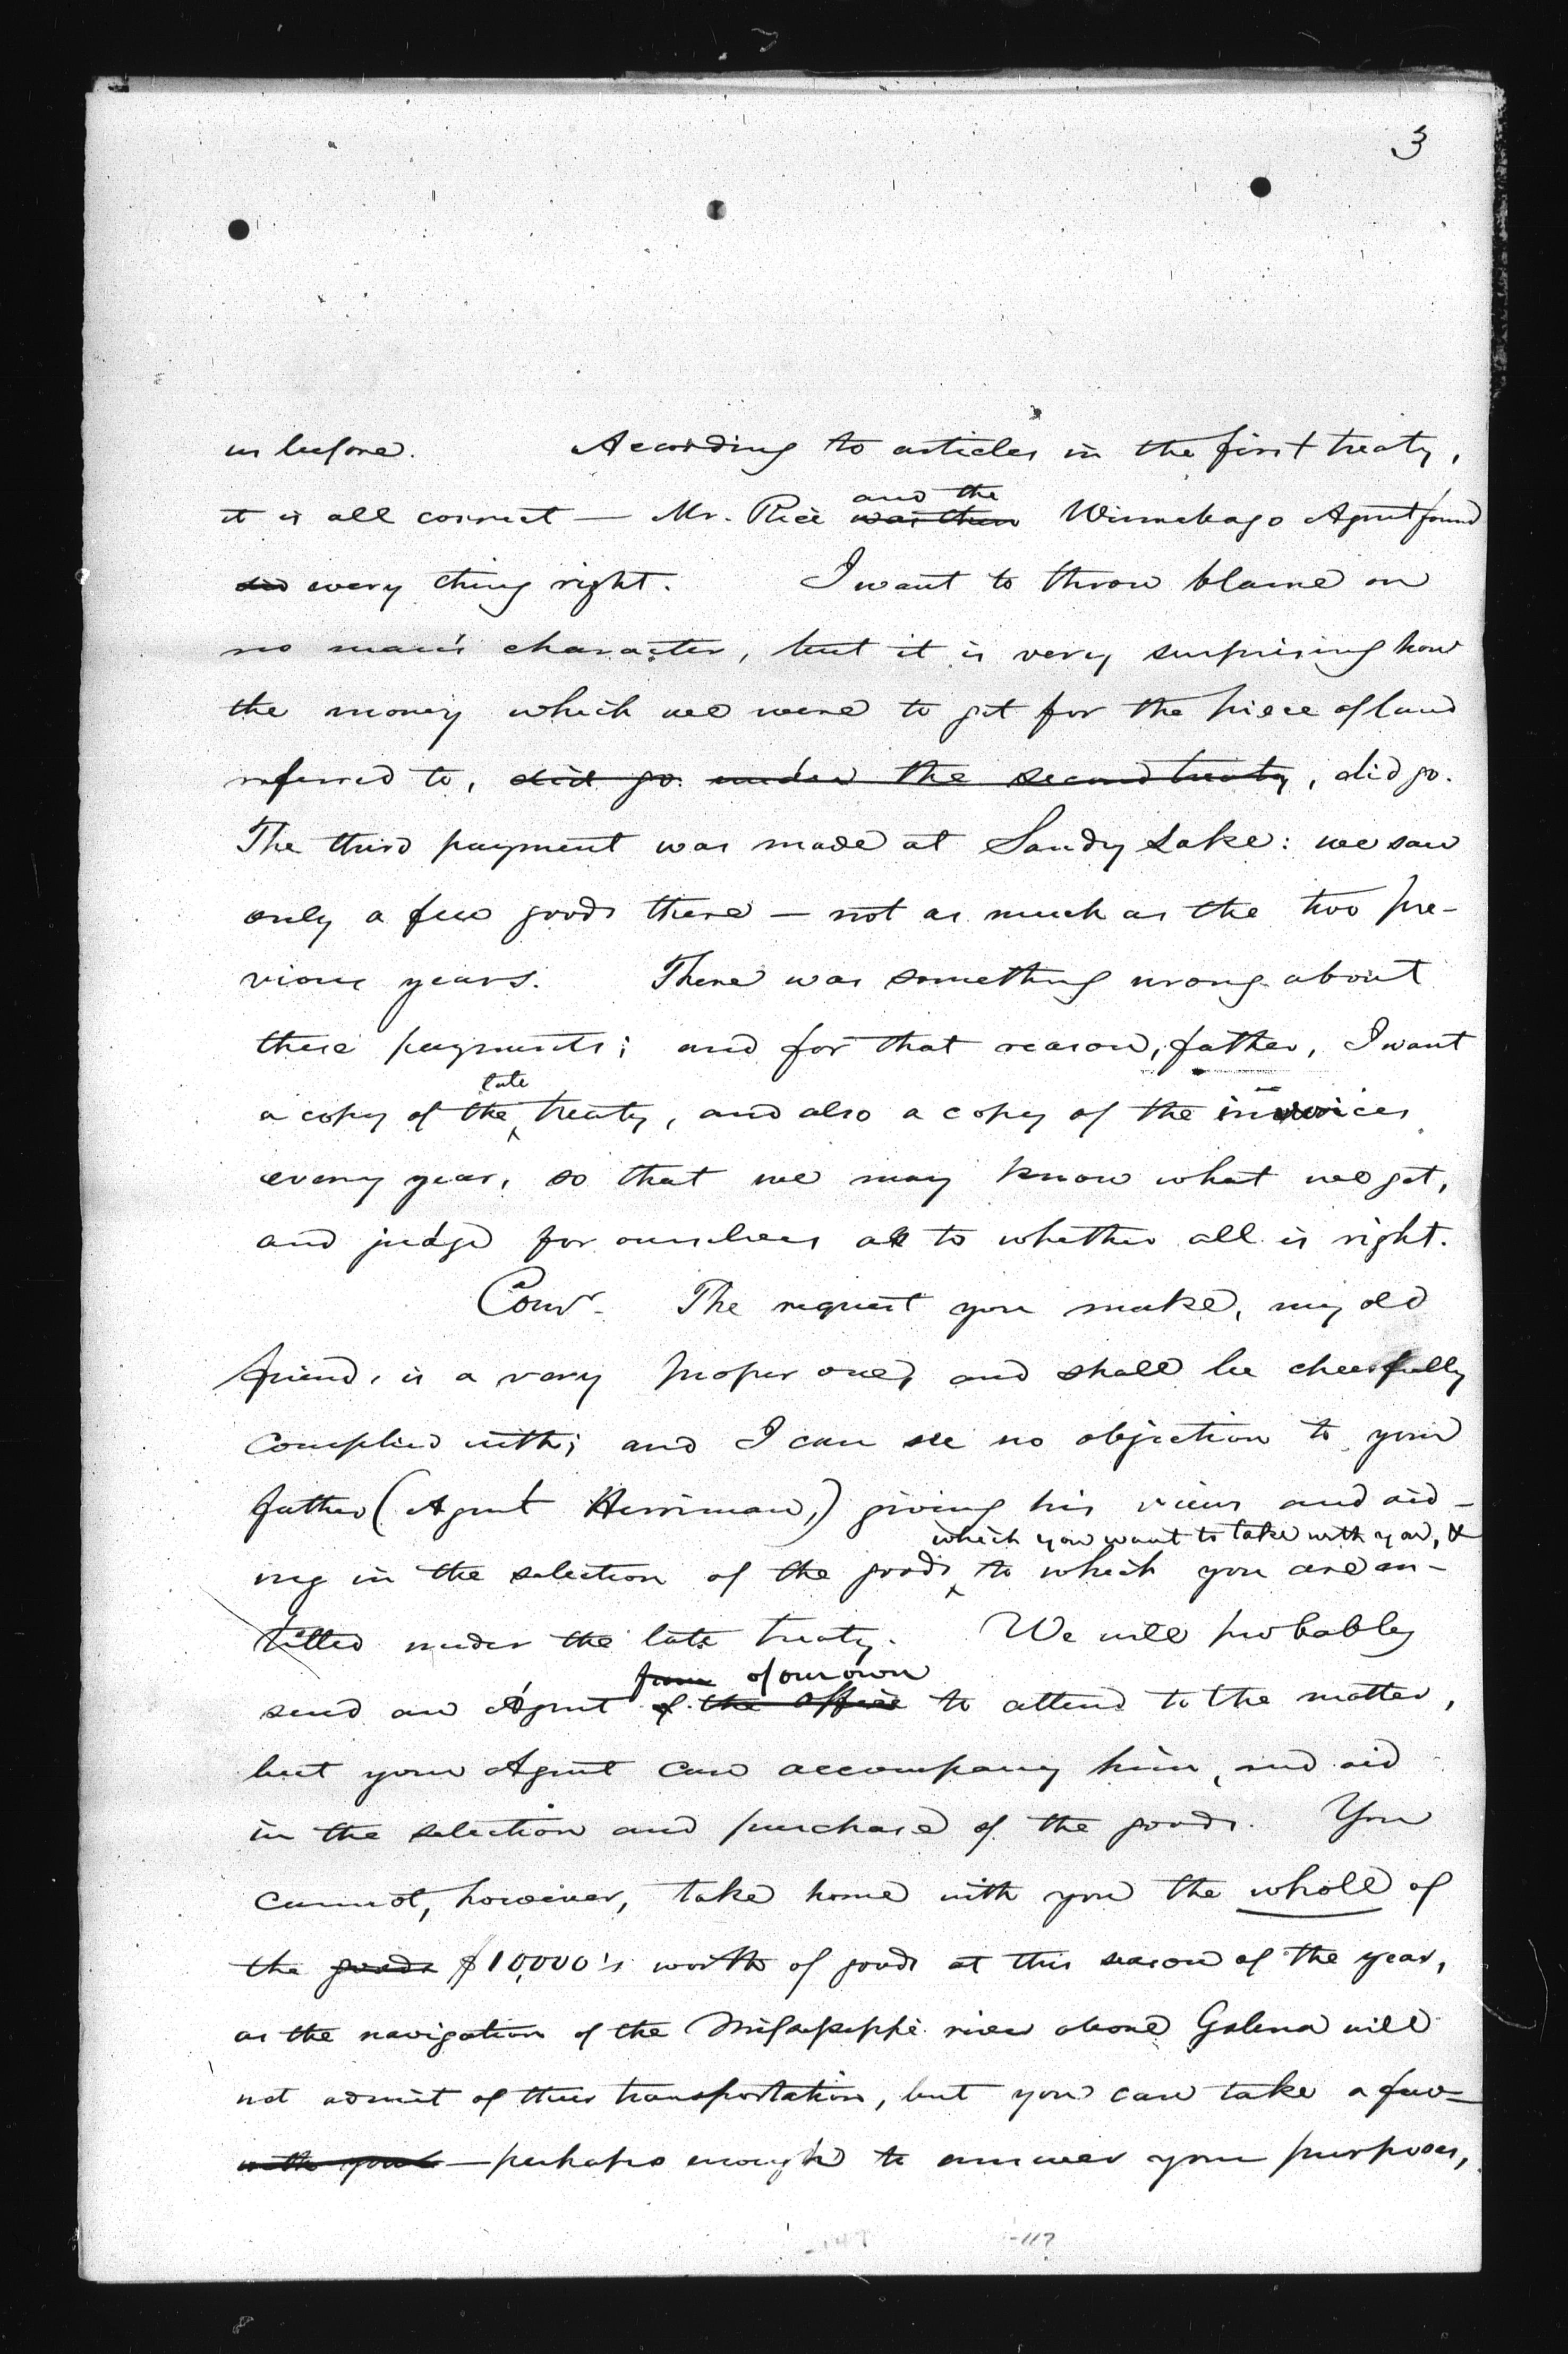 3
us before. According to articles in the first treaty,
it is all correct — Mr. Rice was then and the Winnebago Agent found
did every thing right. I want to throw blame on
no man's character, but it is very surprising how
the money which we were to get for the piece of land
referred to, did go under the second treaty, did go.
The third payment was made at Sandy Lake: we saw
only a few goods there — not as much as the two pre-
vious years. There was something wrong about
these payments; and for that reason, father, I want
a copy of the late treaty, and also a copy of the invoices
every year, so that we may know what we get,
and judge for ourselves as to whether all is right.
Comr. The request you make, my old
friend, is a very proper one, and shall be cheerfully
complied with; and I can see no objection to your
father (Agent Herriman,) giving his views and aid-
which you want to take with you, &
ing in the selection of the goods to which you are en-
titled under the late treaty. We will probably
from of our own
send an Agent of the Office to attend to the matter,
but your Agent can accompany him, and aid
in the selection and purchase of the goods. You
cannot, however, take home with you the whole of
the goods $10,000's worth of goods at this season of the year,
as the navigation of the Missisippi river above Galena will
not admit of their transportation, but you can take a few—
with you — perhaps enough to answer your purposes,
117